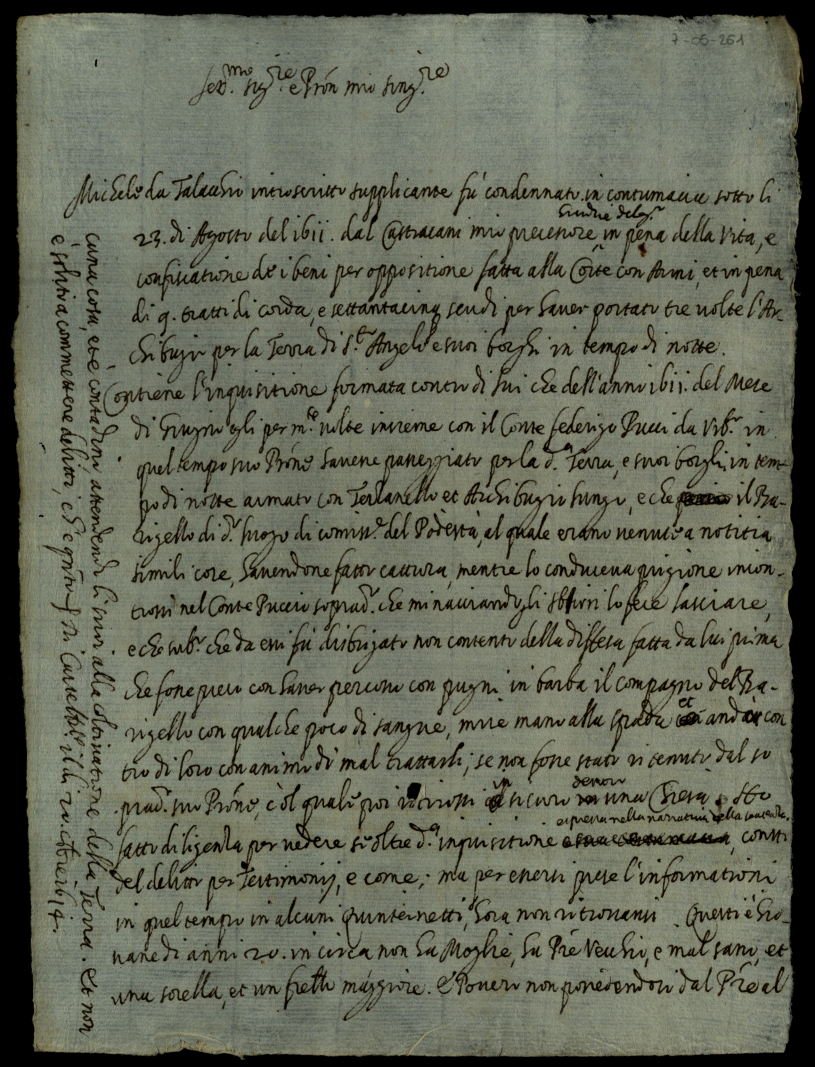 7-05-261
Ser.mo sig.re e Pron mio sing.re
Michele da Talacchio introscritto supplicante fù condennato in contumacia sotto li
23. di Agosto del 1611. dal Castracani mio precessore in pena della vita, e
confiscatione de i beni per oppositione fatta alla Corte con Armi, et in pena
di 9. tratti di corda, e settantacinq scudi per haver portato tre volte l'Ar-
chibugio per la Terra di S.to Angelo e suoi borghi in tempo di notte.
Contiene l'inquisitione formata contro di lui che dell'anno 1611. del Mese
di Giugno egli per m.te volte insieme con il Conte federigo Pucci da Urb.o in
quel tempo suo Prōne havesse passeggiato per la d.a Terra, e suoi borghi, in tem-
po di notte armato con Terzanello et Archibugio lungo, e che il Ba-
rigello di d.o luogo di comiss.ne del Podestà, al quale erano venute a notitia
simili cose, havendone fatto cattura, mentre lo conduceva prigione incon-
trossi nel Conte Puccio soprad.o che minacciando gli sbirri lo fece lasciare,
e che sub.o che da essi fù disbrigato non contento della diffesa fatta da lui prima
che fosse preso con haver percosso con pugni in barba il compagno del Ba-
rigello con qualche poco di sangue, mise mano alla spada et andò con
tro di loro con animo di mal trattarli, se non fosse stato ritenuto dal so
prad.o suo Prōne, còl quale poi ricovrossi in sicuro dentro una Chiesa. Ho
espressa nella narrativa della sentenza
fatto diligenza per vedere se oltre d.a inquisitione, consti
del delitto per Testimonij, e come; ma per essersi prese l'informationi
in quel tempo in alcuni Quinternetti, hora non ritrovansi. Questi è Gio-
vane di anni 20. in circa non ha Moglie, ha Pre Vecchio, e mal sano, et
una sorella, et un frello maggiore. È Povero non possedendosi dal Pre al
cuna cosa, et è contadini attendendo li suoi alla coltivatione della Terra. Et non
è solito a commettere delitti, ch'è q.nto Di li 20. 1614.